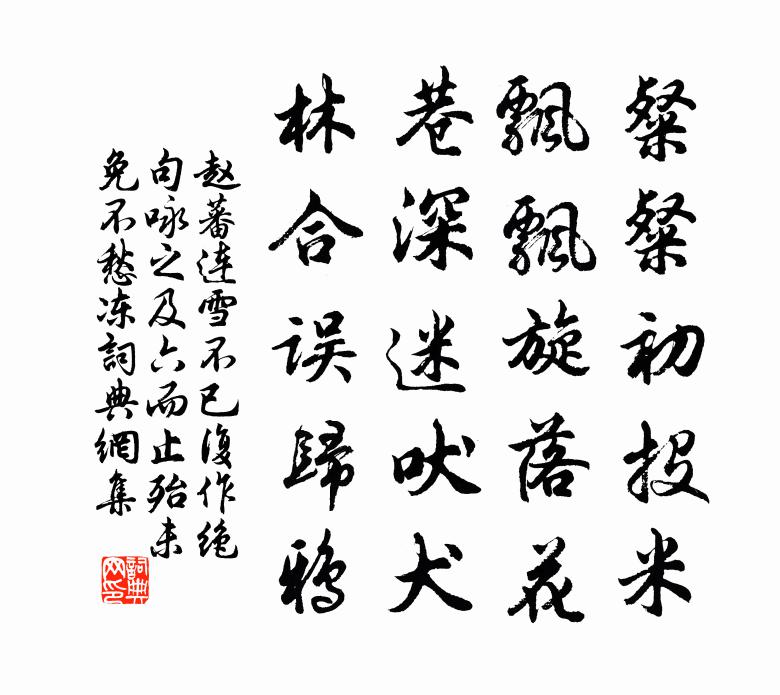 粲粲初投米
飘飘旋落花
巷深迷吠犬
林合误歸鴉
赵蕃连雪不已復作绝
句咏之及六而止殆未
免不愁冻詞典網集
詞典
网印